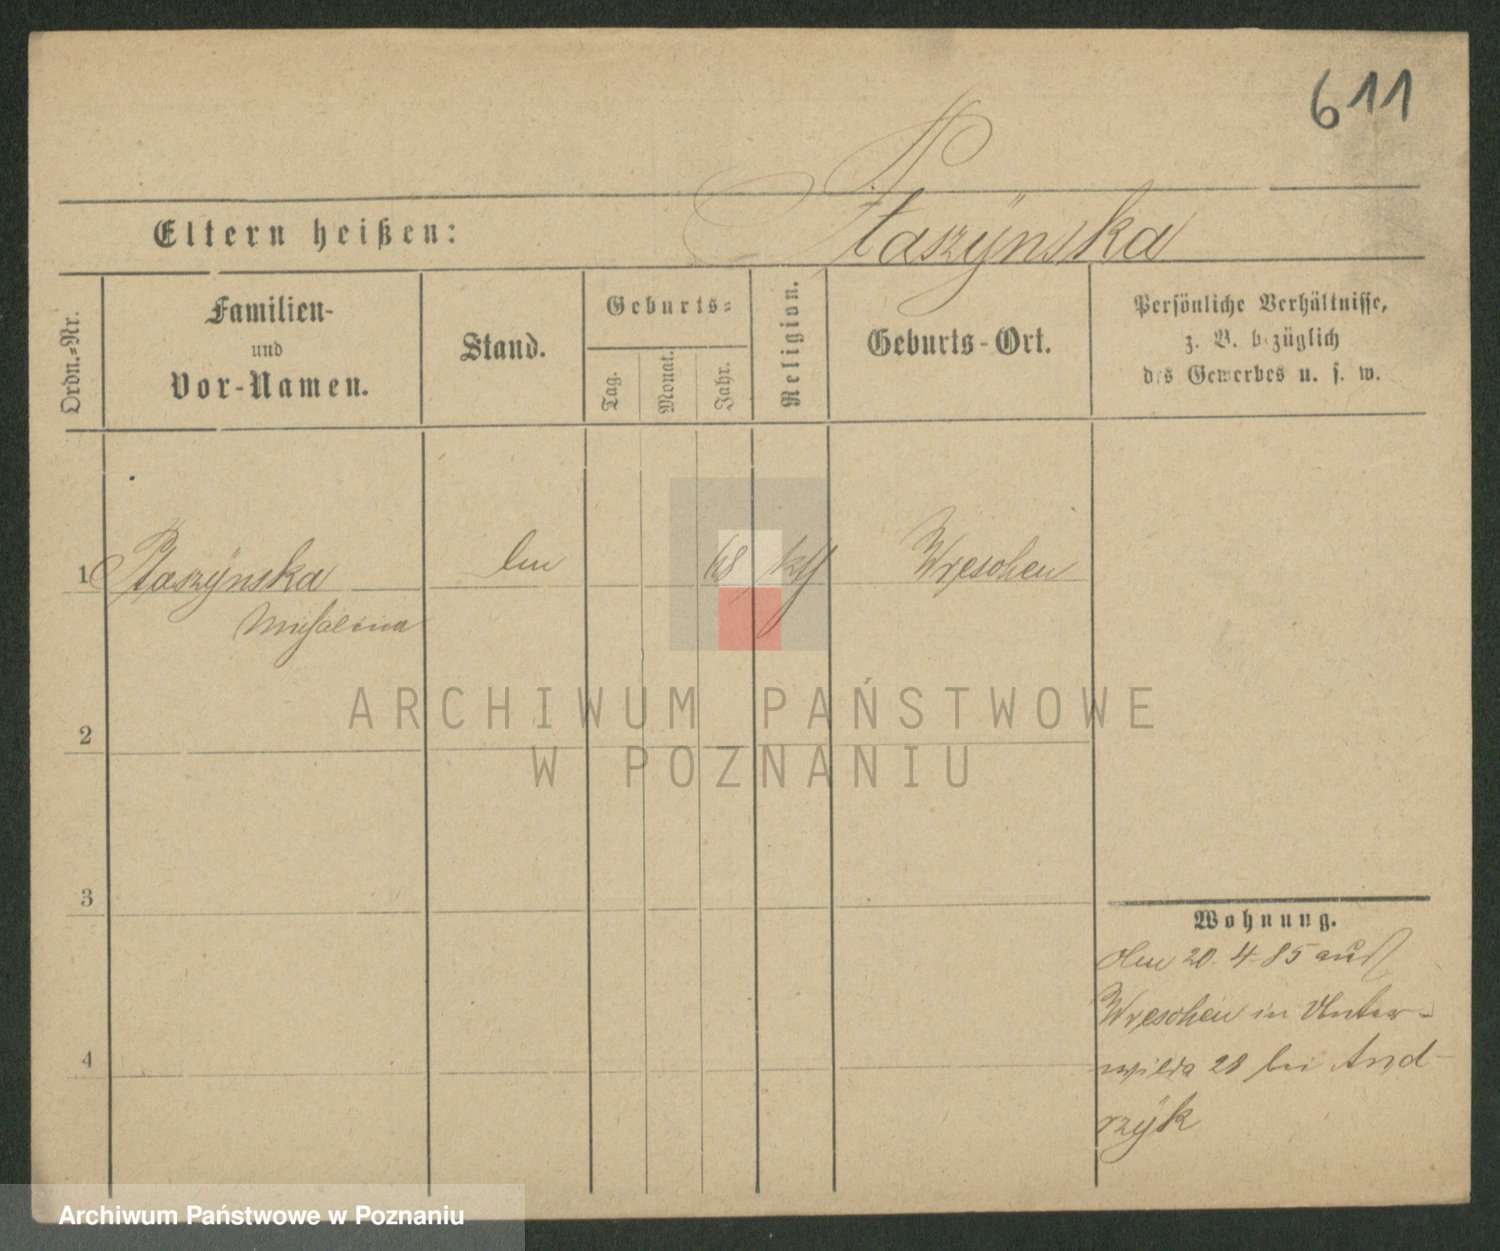 611
Ptaszÿnska
Eltern heißen:
Ordn.=Nr.
Familien-
und
Vor-Namen.
Stand.
Geburts=
Tag.
Monat.
Jahr.
Religion.
Geburts-Ort.
Persönliche Verhältnisse,
z. B. bezüglich
des Gewerbes u. s. w.
1 Ptaszÿnska 68 kth Wreschen
2
3
4
Wohnung.
Am 20.4.85 aus
Wreschen in Unter-
wilda 28 bei And
rzÿk
ARCHIWUM PAŃSTWOWE
W POZNANIU
Archiwum Państwowe w Poznaniu